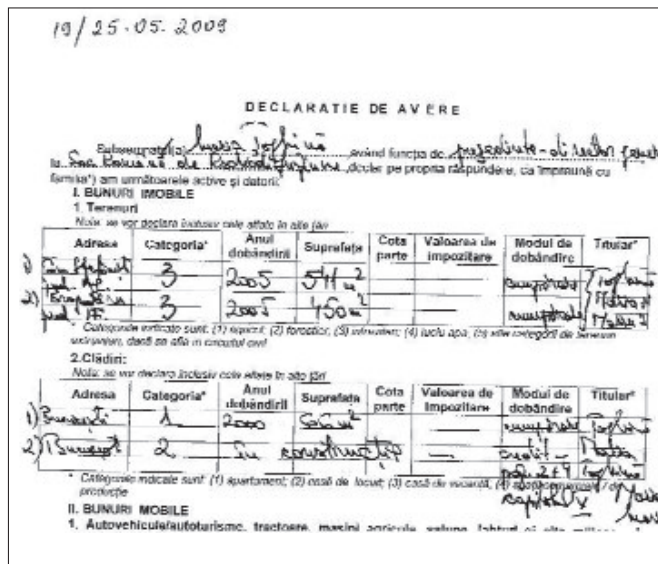 19/25.05.2009
DECLARATIE DE AVERE
Subsemnatul(a) Maria Toghină având funcţia de preşedinte - director general
la Soc. Română de Radiodifuziune, declar pe propria răspundere, că împreună cu
familia*) am următoarele active şi datorii:
I. BUNURI IMOBILE
1. Terenuri
Nota: se vor declara inclusiv cele aflate în alte ţări
Adresa Categoria* Anul dobândirii Suprafaţa Cota parte Valoarea de impozitare Modul de dobândire Titular*
1) jud. 3 2005 541 m² cumpărare Toghină Maria
2) jud. IF. 3 2005 450 m² cumpărare Toghină Maria
* Categoriile indicate sunt: (1) agricol; (2) forestier; (3) intravilan; (4) luciu apa; (5) alte categorii de terenuri
extravilan, dacă se afla in circuitul civil
2.Clădiri:
Nota: se vor declara inclusiv cele aflate în alte ţări
Adresa Categoria* Anul dobândirii Suprafaţa Cota parte Valoarea de impozitare Modul de dobândire Titular*
1) Bucureşti 1 2000 m² — cumpărare Toghină Maria
2) Bucureşti 2 în construcţie — credit - Toghină Maria
capitol V
* Categoriile indicate sunt: (1) apartament; (2) casă de locuit; (3) casă de vacanţă; (4) spaţii comerciale / de
producţie
II. BUNURI MOBILE
1. Autovehicule/autoturisme, tractoare, maşini agricole, şalupe, iahturi şi alte mijloace